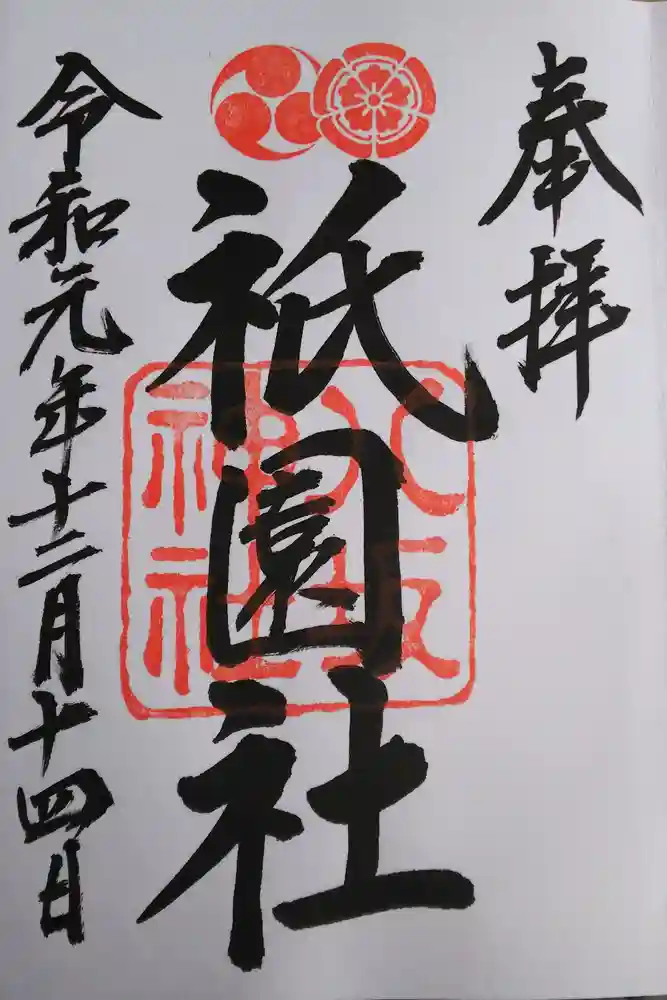 奉拝
祇園社
八坂神社
令和元年十二月十四日